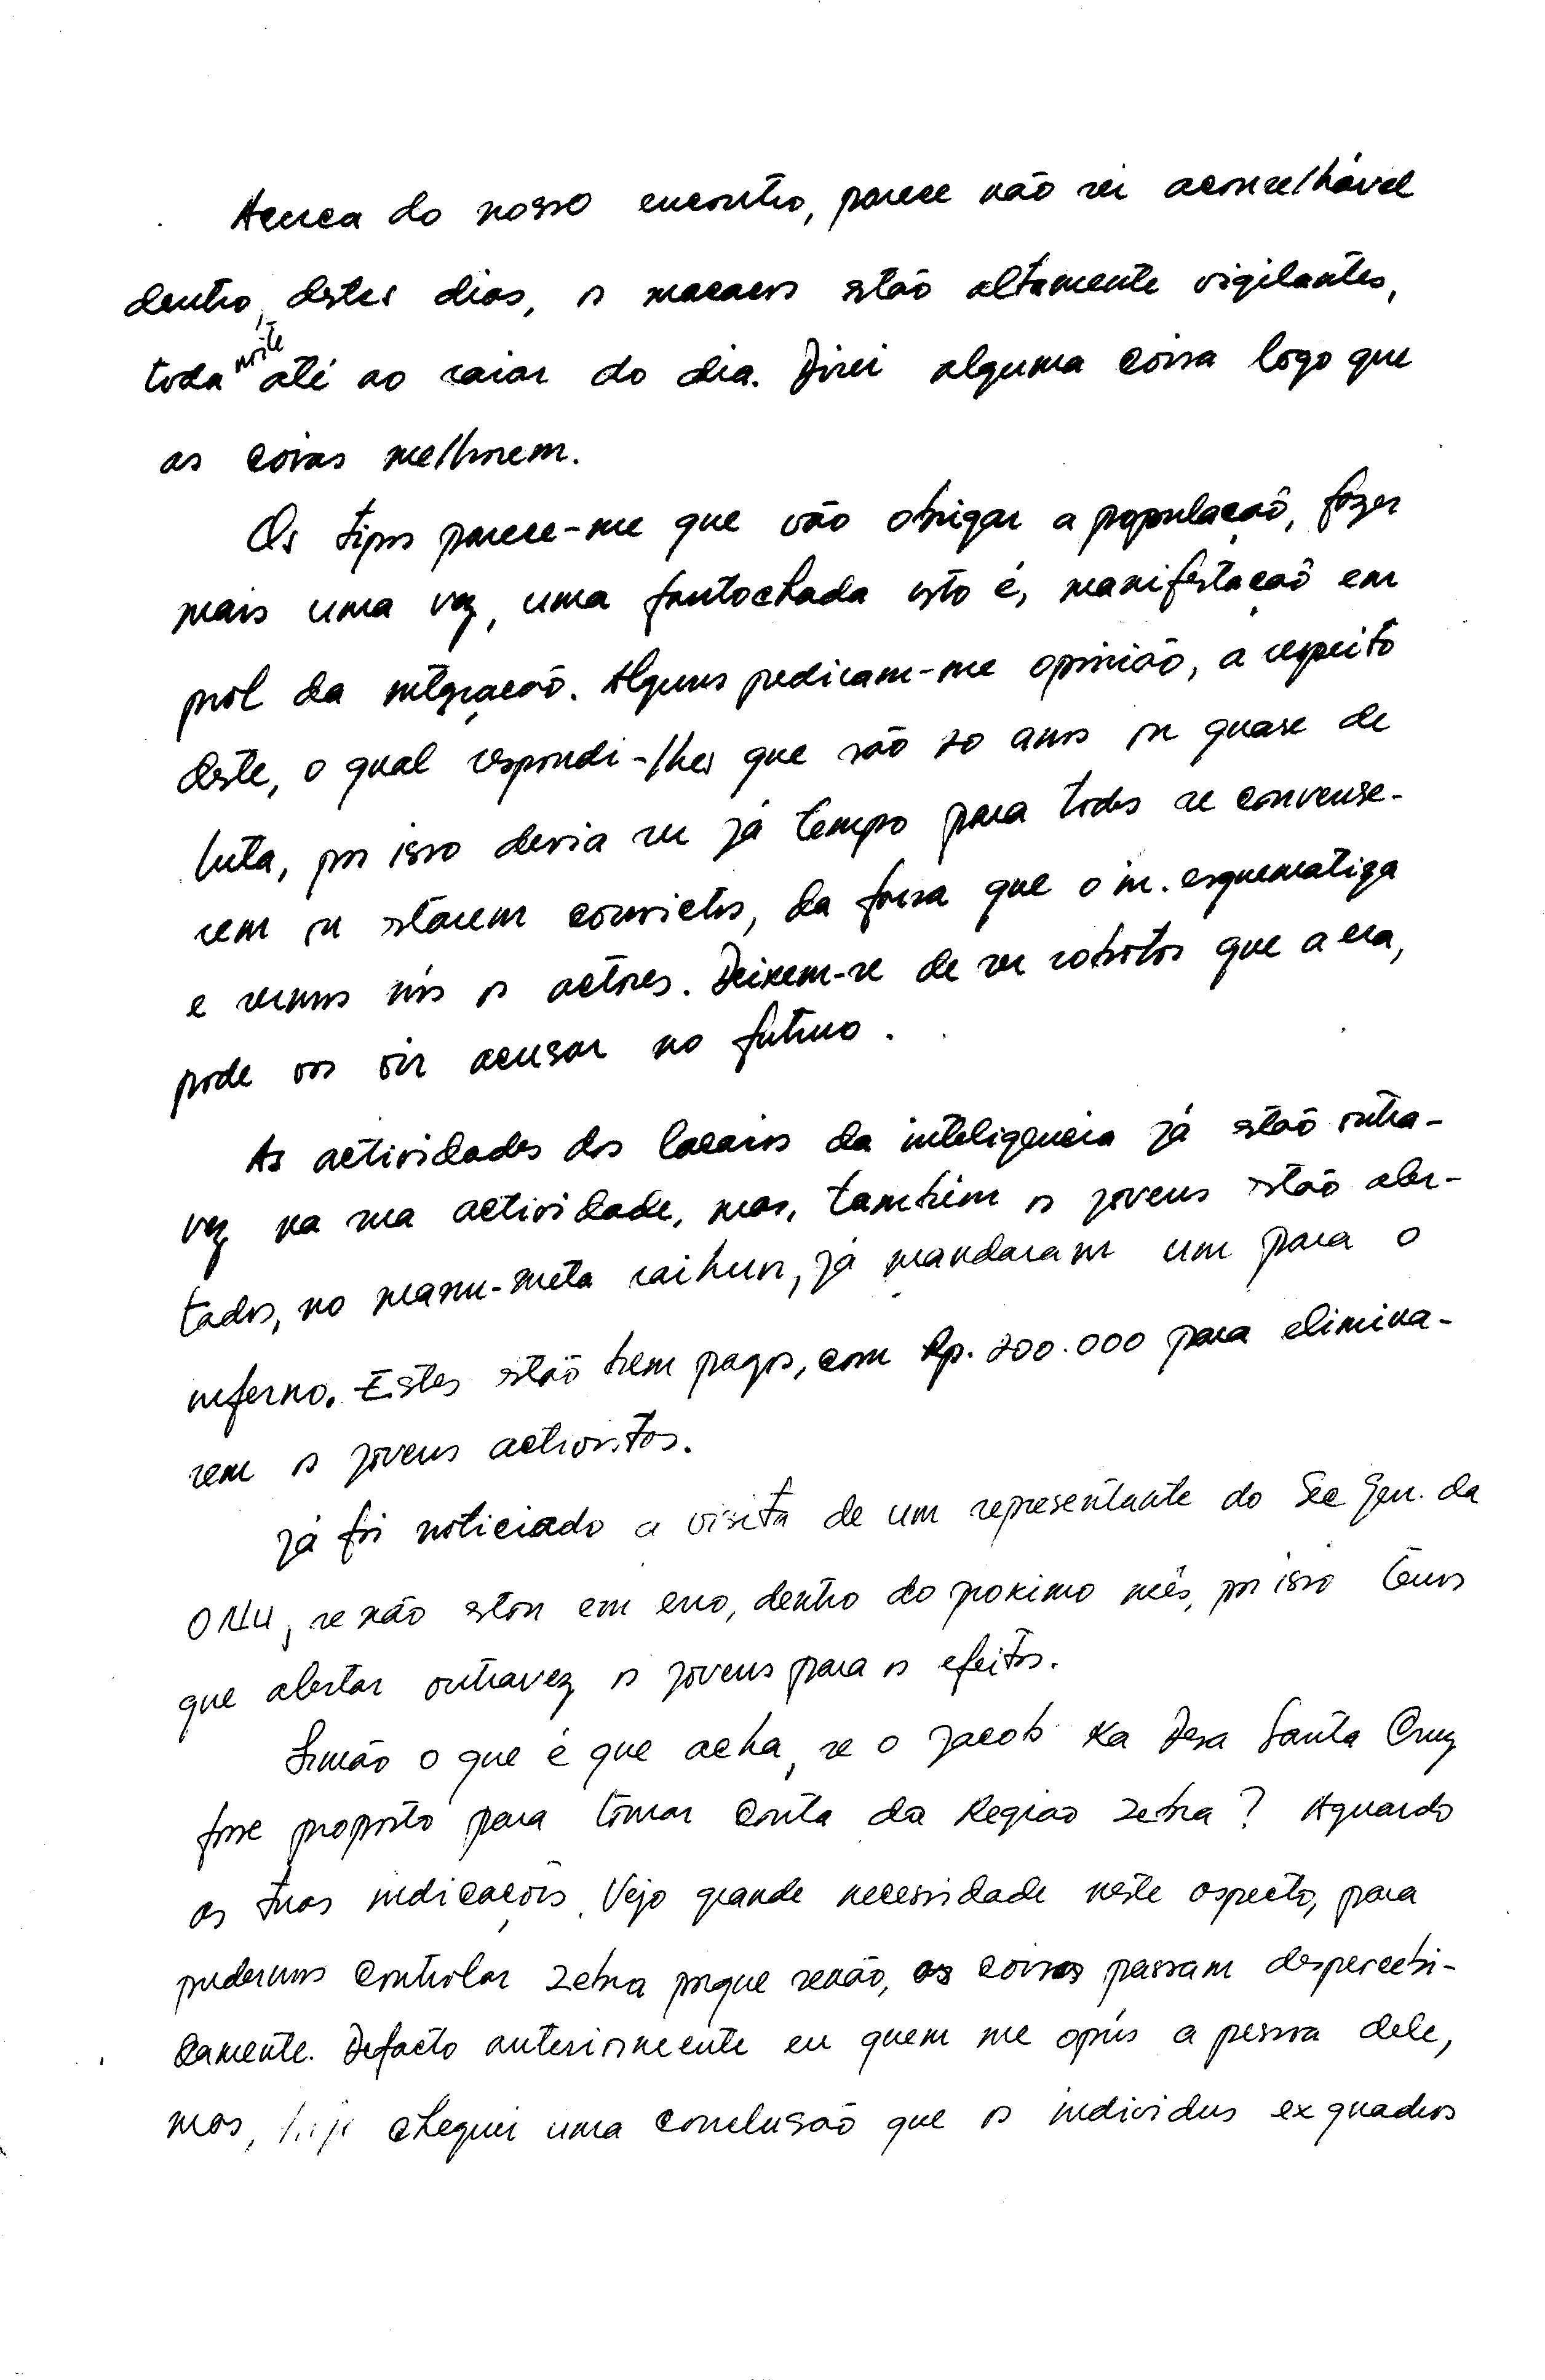 Acerca do nosso encontro, parece não ser aconselhável
dentro destes dias, os macacos estão altamente vigilantes,
toda noite até ao raiar do dia. Direi alguma coisa logo que
as coisas melhorem.
Os tipos parece-me que vão obrigar a população, fazer
mais uma vez, uma fantochada isto é, manifestação em
prol da integração. Alguns pediram-me opinião, a respeito
deste, o qual respondi-lhes que são 20 anos ou quase de
luta, por isso devia ser já tempo para todos se convense-
rem ou estarem convictos, da farsa que o in. esquematiza
e sermos nós os actores. Deixem-se de ser robotos que a era,
pode vos vir acusar no futuro.
As actividades dos lacaios da inteligencia já estão outra-
vez na sua actividade, mas, também os jovens estão aler-
tados, no manu-meta rai hun, já mandaram um para o
inferno. Estes estão bem pagos, com Rp. 200.000 para elimina-
rem os jovens activistas.
Já foi noticiado a visita de um representante do Sec Gen. da
ONU, se não estou em erro, dentro do proximo mês, por isso temos
que alertar outravez os jovens para os efeitos.
Simão o que é que acha, se o Jacob Ka Desa Santa Cruz
fosse proposto para tomar conta da Regiao Zebra? Aguardo
as tuas indicações. Vejo grande necessidade neste aspecto, para
pudermos controlar Zebra porque senão, as coisas passam despercebi-
damente. Defacto anteriormente eu quem me opús a pessoa dele,
mas, hoje cheguei uma conclusão que os individus ex quadros